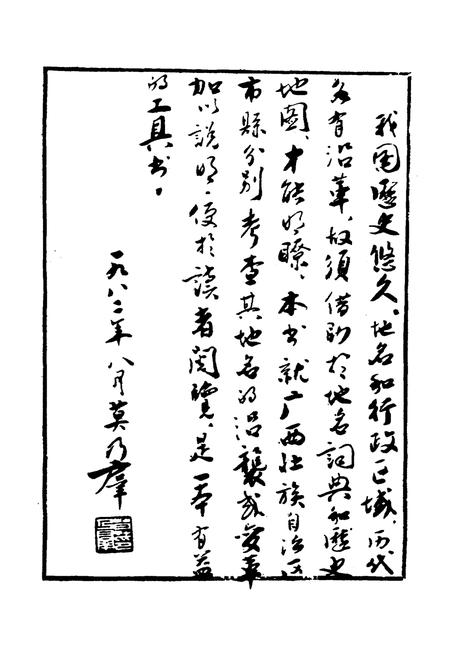 我国历史悠久、地名和行政区域、历代
多有沿革、故须借助于地名词典和历史
地图、才能明瞭、本书就广西壮族自治区
市县分别考查其地名的沿袭或变革
加以说明、便于读者阅览、是一本有益
的工具书。
一九八二年八月莫乃群